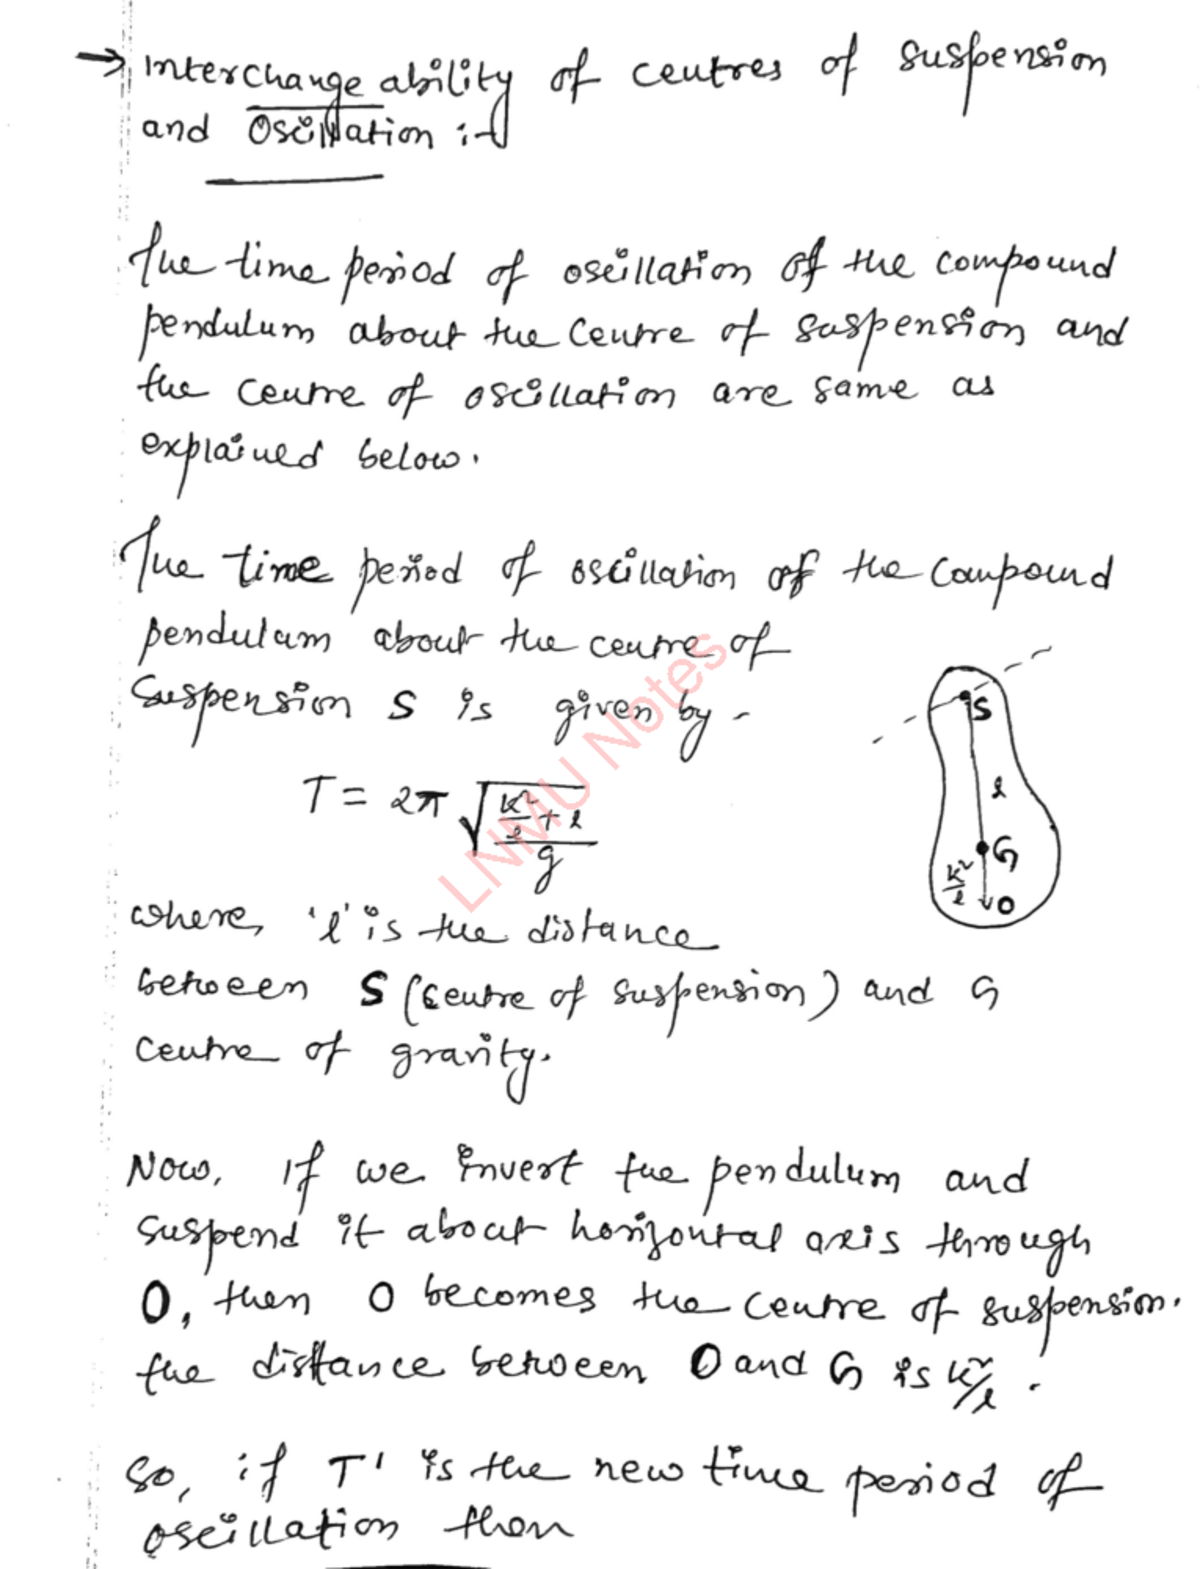 → Interchangeability of centres of suspension
and Oscillation :-
The time period of oscillation of the compound
pendulum about the centre of suspension and
the centre of oscillation are same as
explained below.
The time period of oscillation of the compound
pendulum about the centre of
suspension S is given by -
T = 2π √((k²/l + l)/g)
S
l
G
k²/l
O
where, 'l' is the distance
between S (centre of suspension) and G
centre of gravity.
Now, if we invert the pendulum and
suspend it about horizontal axis through
O, then O becomes the centre of suspension.
the distance between O and G is k²/l .
So, if T' is the new time period of
oscillation then
LNMU Notes